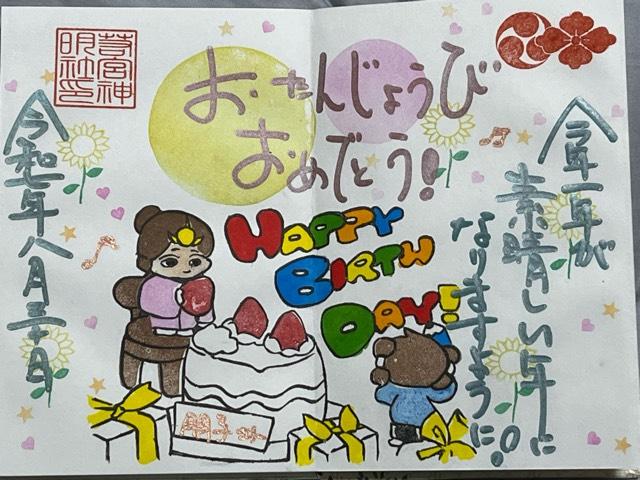 おたんじょうび
おめでとう!
今年一年が
素晴しい年に
なりますように。
HAPPY
BIRTH
DAY!!
朋子さん
令和七年八月三十日